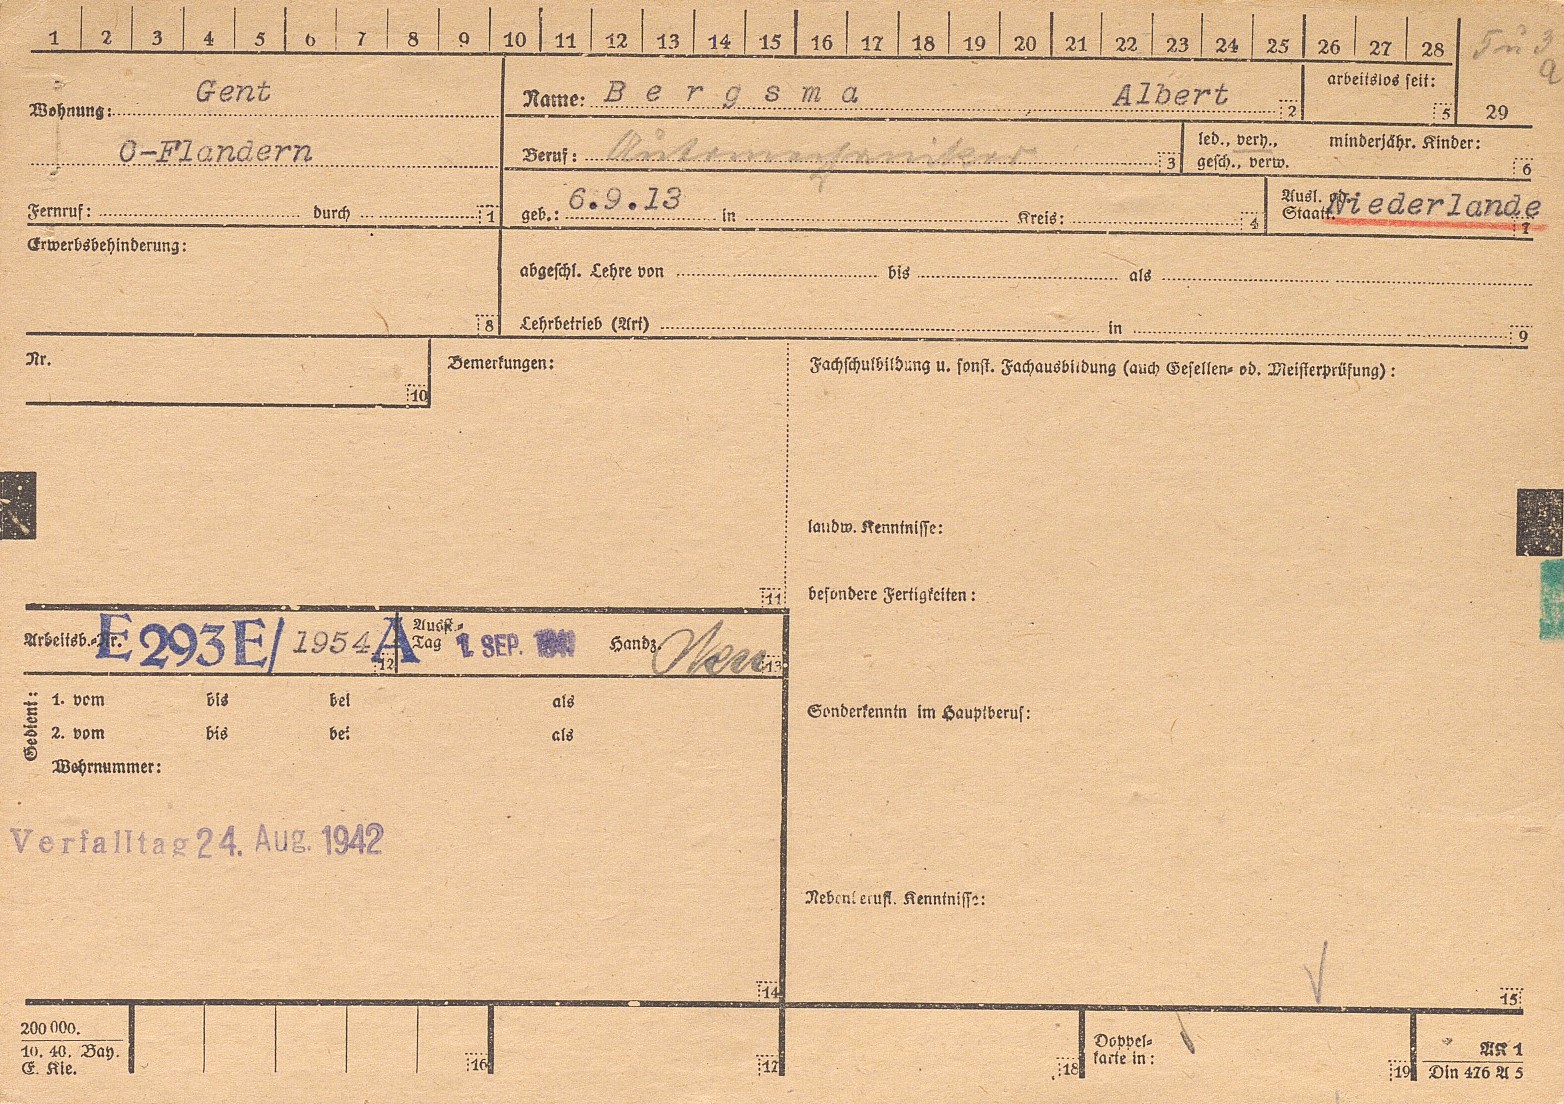 1 2 3 4 5 6 7 8 9 10 11 12 13 14 15 16 17 18 19 20 21 22 23 24 25 26 27 28
29
Wohnung: Gent
O-Flandern
Fernruf: durch 1
Name: Bergsma Albert 2
arbeitslos seit: 5
Beruf: Automechaniker 3
led., verh.,
gesch., verw.
minderjähr. Kinder: 6
geb.: 6.9.13 in Kreis: 4
Ausl. od.
Staatl. Niederlande 7
Erwerbsbehinderung: 8
abgeschl. Lehre von bis als
Lehrbetrieb (Art) in 9
Nr. 10
Bemerkungen: 11
Fachschulbildung u. sonst. Fachausbildung (auch Gesellen- od. Meisterprüfung):
landw. Kenntnisse:
besondere Fertigkeiten:
Arbeitsb.-Nr. E 293 E/ 1954 A 12
Ausst.-
Tag 1. SEP. 1941 Handz. 13
Gedient:
1. vom bis bei als
2. vom bis bei als
Wehrnummer:
Sonderkenntn im Hauptberuf:
Verfalltag 24. Aug. 1942
14
Nebenberufl. Kenntnisse:
15
200 000.
10. 40. Bay.
E. Kie.
16 17 18
Doppel-
karte in: 19
AK 1
Din 476 A 5